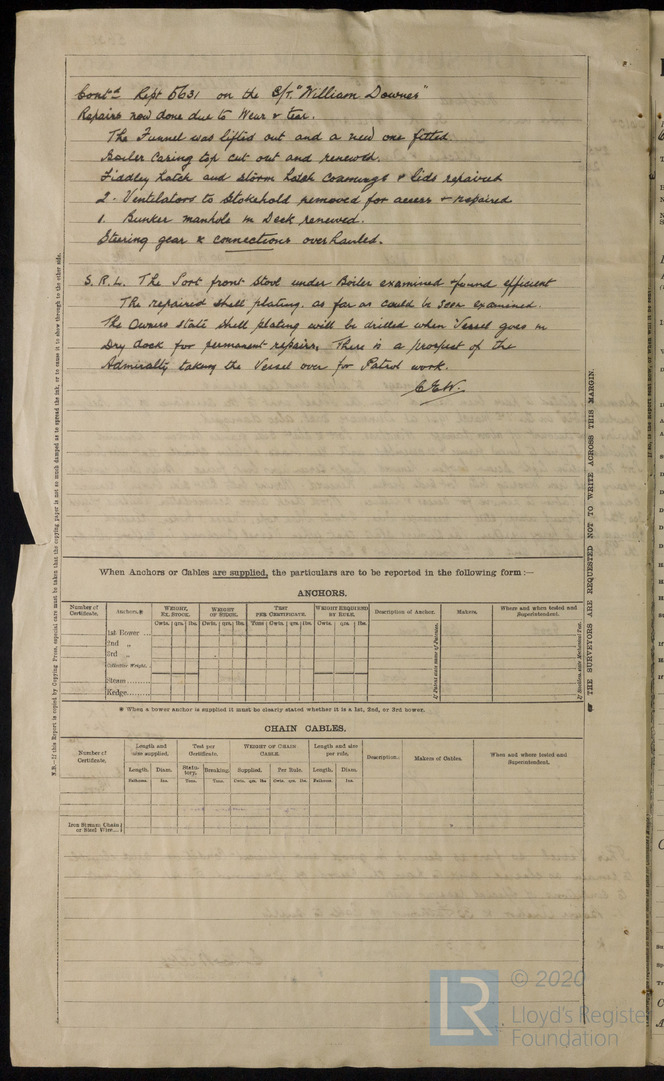 Contd Rept 5631 on the S/T. "William Downes"
Repairs now done due to Wear & tear.
The Funnel was lifted out and a new one fitted.
Boiler Casing top cut out and renewed.
Fiddley hatch and storm hatch Coamings & lids repaired
2 - Ventilators to Stokehold removed for access & repaired
1. Bunker manhole in Deck renewed.
Steering gear & connections overhauled.
S.R.L. The Port front Stool under Boiler examined & found efficient
The repaired shell plating, as far as could be seen examined.
The Owners state shell plating will be drilled when Vessel goes in
Dry dock for permanent repairs. There is a prospect of the
Admiralty taking the Vessel over for Patrol work.
C.E.W.
N.B.—If this Report is copied by Copying Press, especial care must be taken that the copying paper is not so much damped as to spread the ink, or to cause it to show through to the other side.
☞ THE SURVEYORS ARE REQUESTED NOT TO WRITE ACROSS THIS MARGIN.
When Anchors or Cables are supplied, the particulars are to be reported in the following form :—
ANCHORS.
Number of Certificate. Anchors.* WEIGHT, EX. STOCK. WEIGHT OF STOCK. TEST PER CERTIFICATE. WEIGHT REQUIRED BY RULE. Description of Anchor. Makers. Where and when tested and Superintendent.
Cwts. qrs. lbs. Cwts. qrs. lbs. Tons Cwts. qrs. lbs. Cwts. qrs. lbs.
1st Bower ...
2nd „
3rd „
Collective Weight.
Stream
Kedge
* When a bower anchor is supplied it must be clearly stated whether it is a 1st, 2nd, or 3rd bower.
CHAIN CABLES.
Number of Certificate. Length and size supplied. Test per Certificate. WEIGHT OF CHAIN CABLE. Length and size per rule. Description. Makers of Cables. When and where tested and Superintendent.
Length. Diam. Statutory. Breaking. Supplied. Per Rule. Length. Diam.
Fathoms. Ins. Tons. Tons. Cwts. qrs. lbs Cwts. qrs. lbs. Fathoms. Ins.
Iron Stream Chain or Steel Wire
LR
© 2020
Lloyd's Register
Foundation